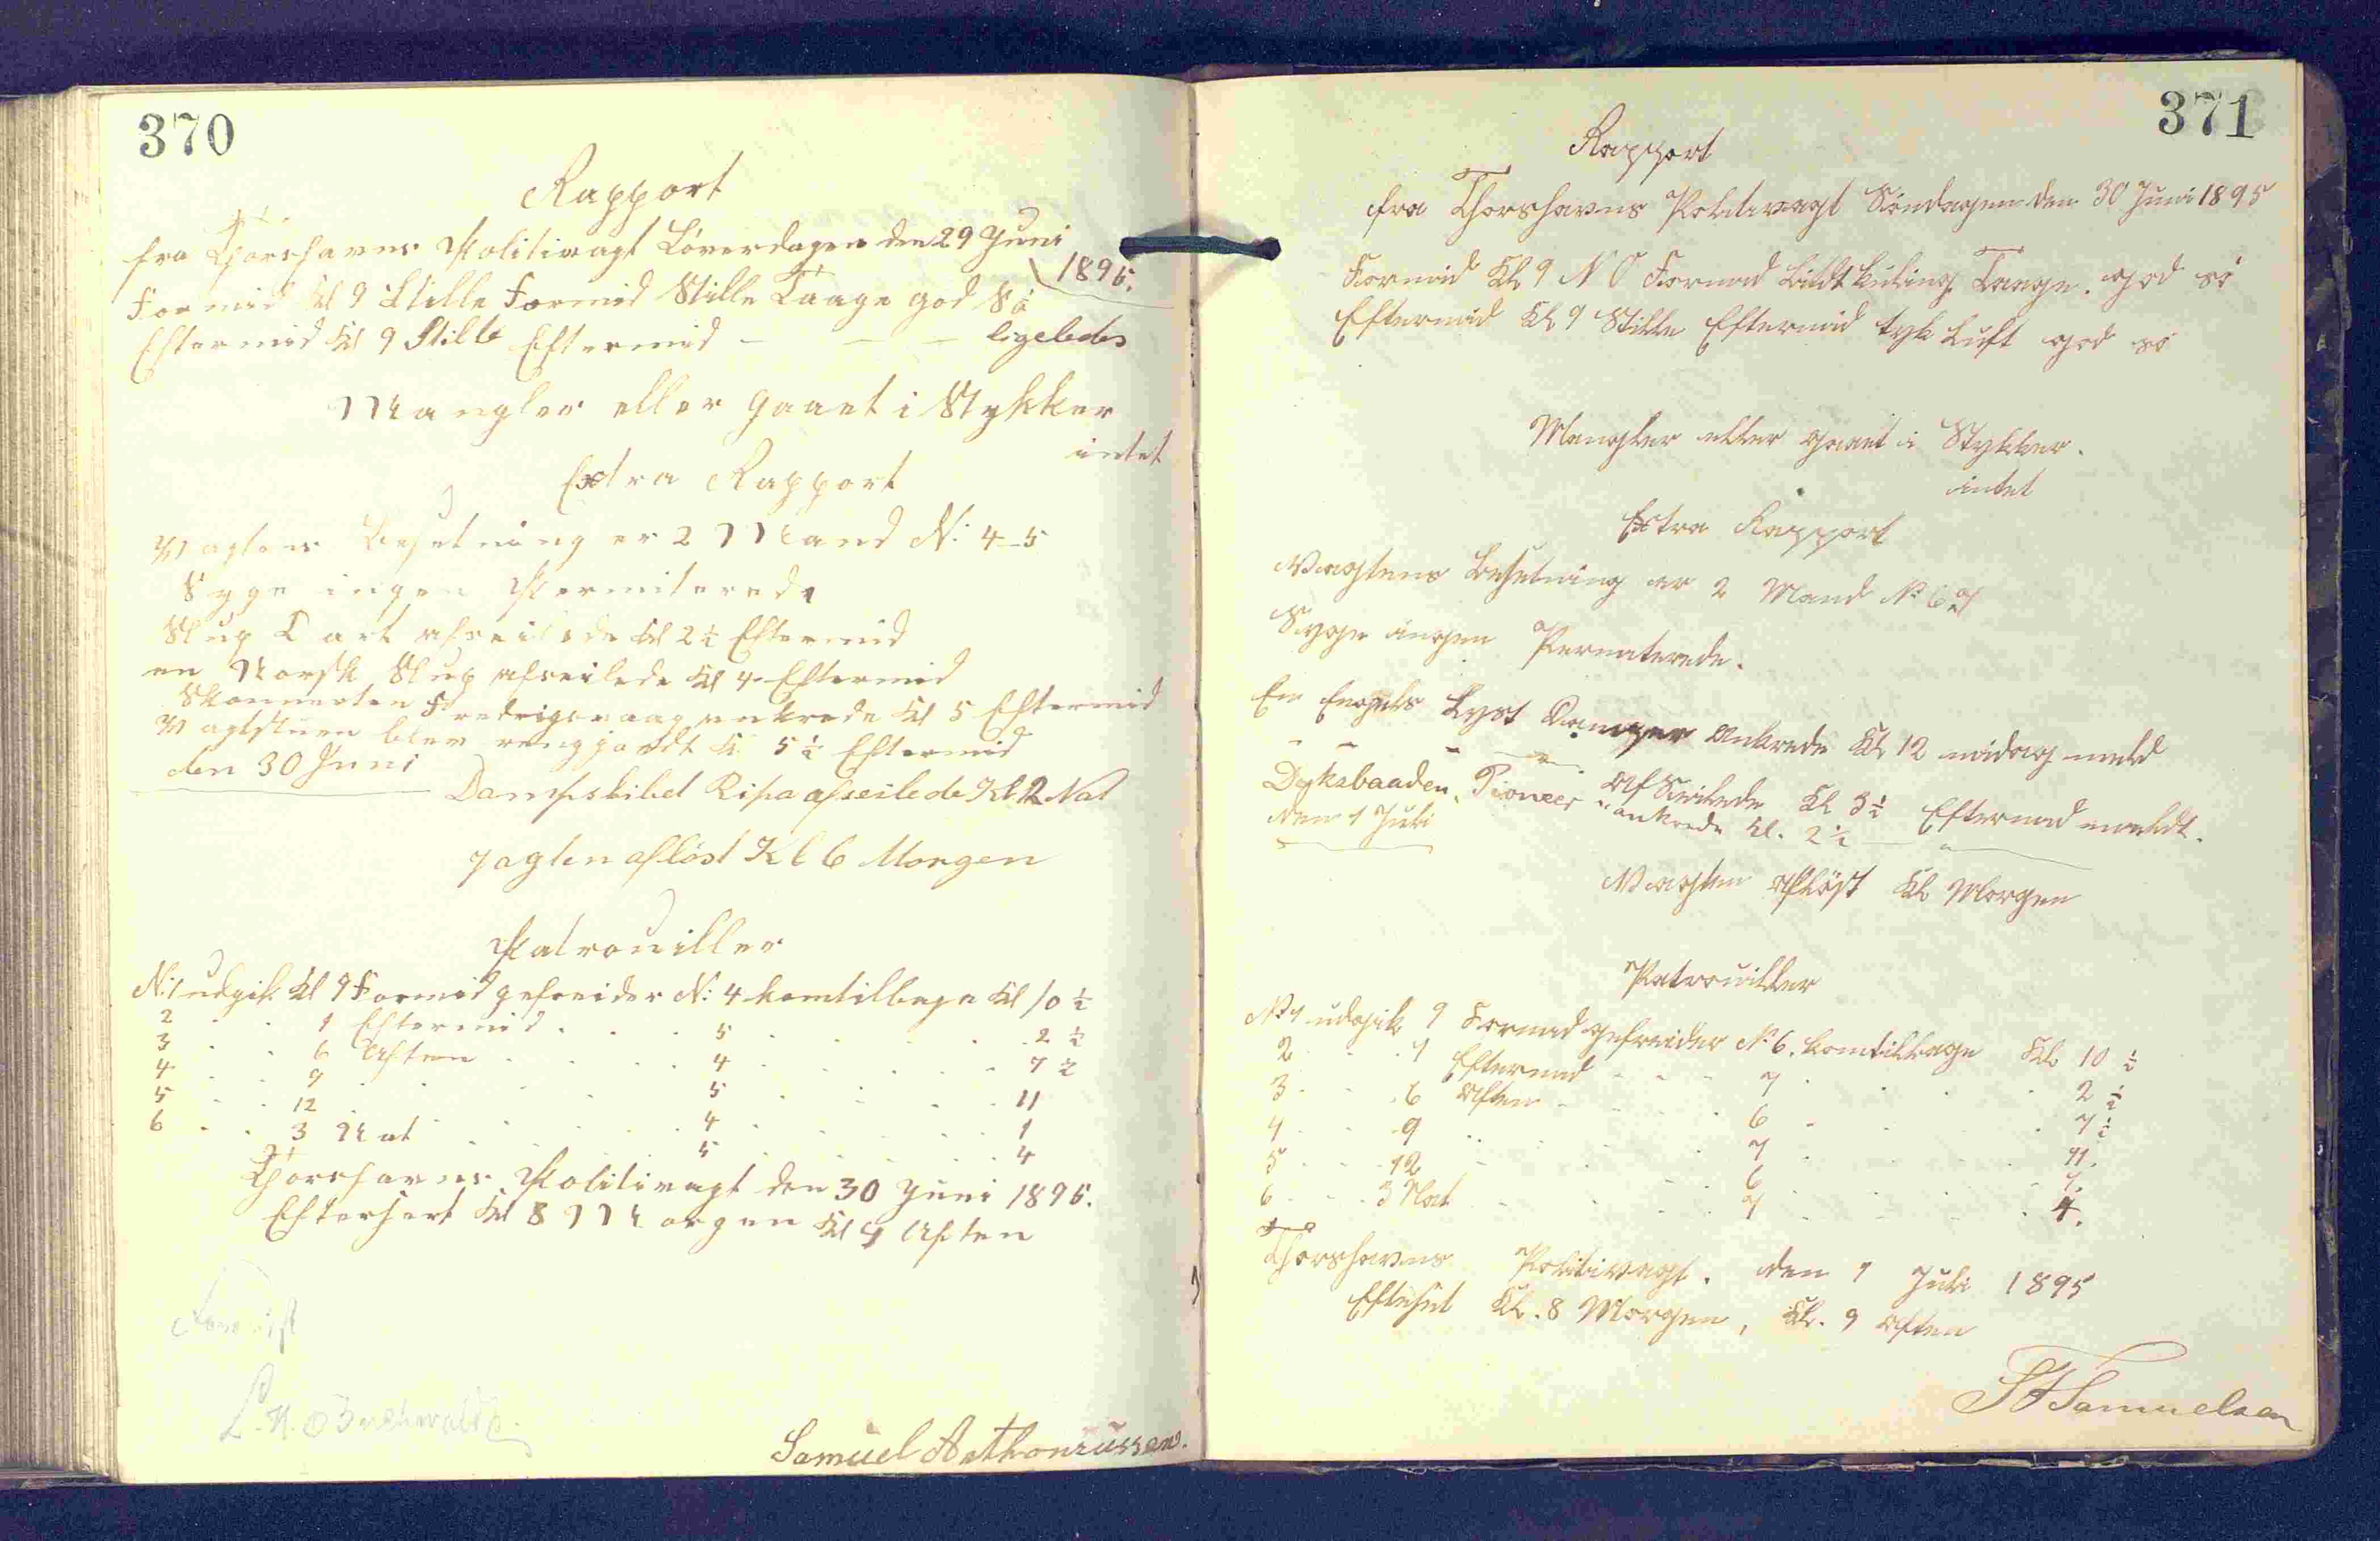 370
Rapport
fra Thorshavns Politivagt Löverdagen den 29 Juni
1895.
Formid Kl 9 Stille Formid Stille Taage god Sö
Eftermid Kl 9 Stille Eftermid — — — ligeledes
Mangler eller gaaet i Stykker
intet
Extra Rapport
Vagtens Besetning er 2 Mand N: 4-5
Syge ingen Permiterede
Slup Dart afseilede Kl 2½ Eftermid
en Norsk Slup afseilede Kl 4 Eftermid
Skonnerten Fredrigsvaag ankrede Kl 5 Eftermid
Vagtstuen blev rengjordt Kl 5½ Eftermid
den 30 Juni
Dampskibet Ripa afseilede Kl 2 Nat
Vagten aflöst Kl 6 Morgen
Patrouiller
N:1 udgik Kl 9 Formid gefreider N: 4 kom tilbage Kl 10½
2 . . 1 Eftermid . . . 5 . . . . 2½
3 . . 6 Aften . . . 4 . . . . 7½
4 . . 9 . . . . 5 . . . . 11
5 . . 12 . . . . 4 . . . . 1
6 . . 3 Nat . . . . 5 . . . . 4
Thorshavns Politivagt den 30 Juni 1895.
Efterset Kl 8 Morgen Kl 9 Aften
Samuel Anthoniussen.
371
Rapport
fra Thorshavns Politivagt Söndagen den 30 Juni 1895
Formid Kl 9 N O Formid Lidt kuling Taage. god sö
Eftermid Kl 9 Stille Eftermid tyk Luft god sö
Mangler eller gaaet i Stykker.
intet
Extra Rapport
Vagtens Besetning er 2 Mand No 6 og 7
Syge ingen Permiterede.
En Engelsk Lyst Damper Ankrede Kl 12 midag meld
" " " " Afseilede Kl 3½ Eftermid meldt.
Dyksbaaden, Pioneer " ankrede Kl. 2½ — "
den 1 Juli
Vagten Aflöst Kl Morgen
Patrouiller
No 1 udgik 9 Formid gefreider No 6. kom tilbage Kl 10½
2 . . 1 Eftermid . . . 7 . . . 2½
3 . . 6 Aften . . . 6 . . . 7½
4 . . 9 . . . 7 . . . 11.
5 . . 12 . . . 6 . . . 1.
6 . . 3 Nat . . . 7 . . . 4.
Thorshavns Politivagt. den 1 Juli 1895
Efterset Kl. 8 Morgen, Kl. 9 Aften
Samuelsen